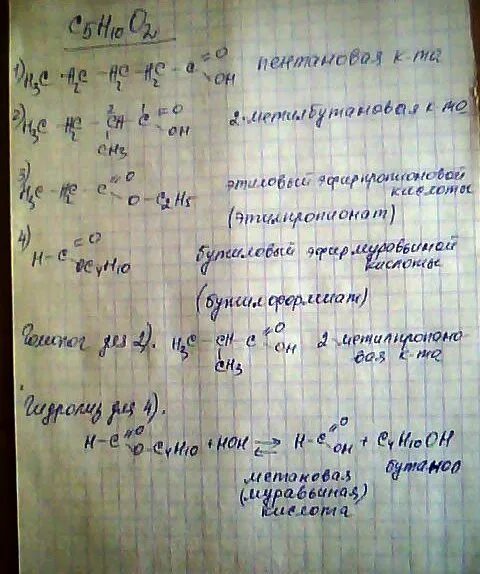 C5H10O2
1) H3C - H2C - H2C - H2C - C =O OH пентановая к-та
2) H3C - H2C - CH - C =O OH 2-метилбутановая к-та
2 1
CH3
3) H3C - H2C - C =O O - C2H5 этиловый эфир пропионовой
кислоты
(этилпропионат)
4) H - C =O OC4H10 бутиловый эфир муравьиной
кислоты
(бутилформиат)
Гомолог для 2). H3C - CH - C =O OH 2-метилпропано-
CH3 вая к-та
Гидролиз для 4).
H - C =O O-C4H10 + HOH ⇄ H - C =O OH + C4H10OH
метановая бутанол
(муравьиная)
кислота